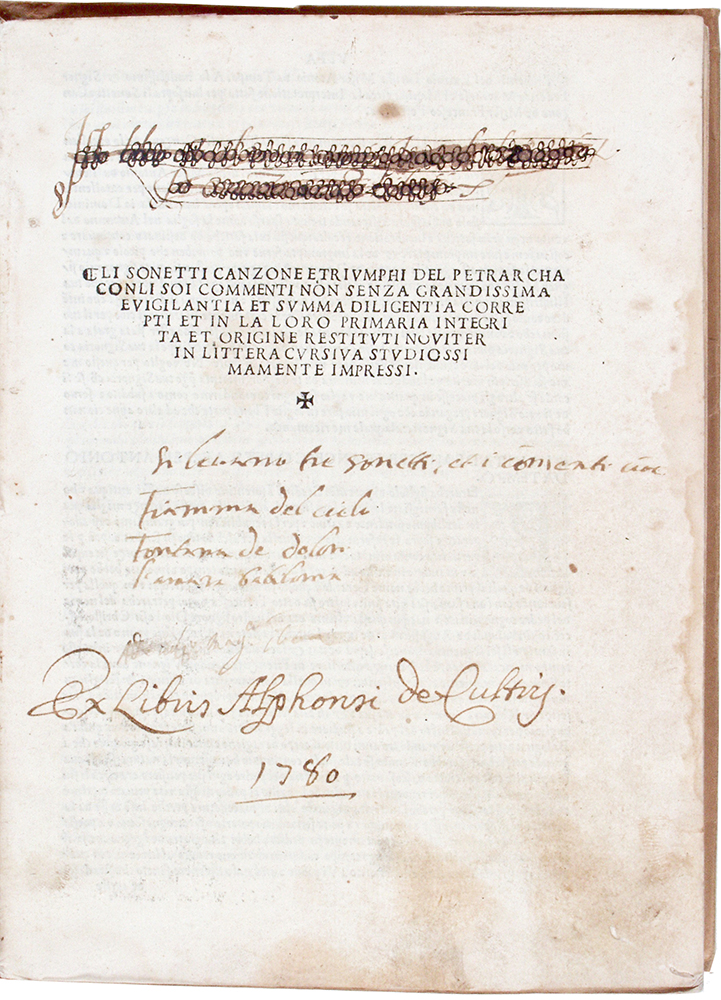 GLI SONETTI CANZONE ET TRIVMPHI DEL PETRARCHA
CON LI SOI COMMENTI NON SENZA GRANDISSIMA
EVIGILANTIA ET SVMMA DILIGENTIA CORRE
PTI ET IN LA LORO PRIMARIA INTEGRI
TA ET ORIGINE RESTITVTI NOVITER
IN LITTERA CVRSIVA STVDIOSSI
MAMENTE IMPRESSI.
Si levano tre sonetti, et i comenti cioe
Fiamma del cielo
Fontana de dolor
L'avara Babilonia
Ex Libris Alphonsi de Cultis.
1780